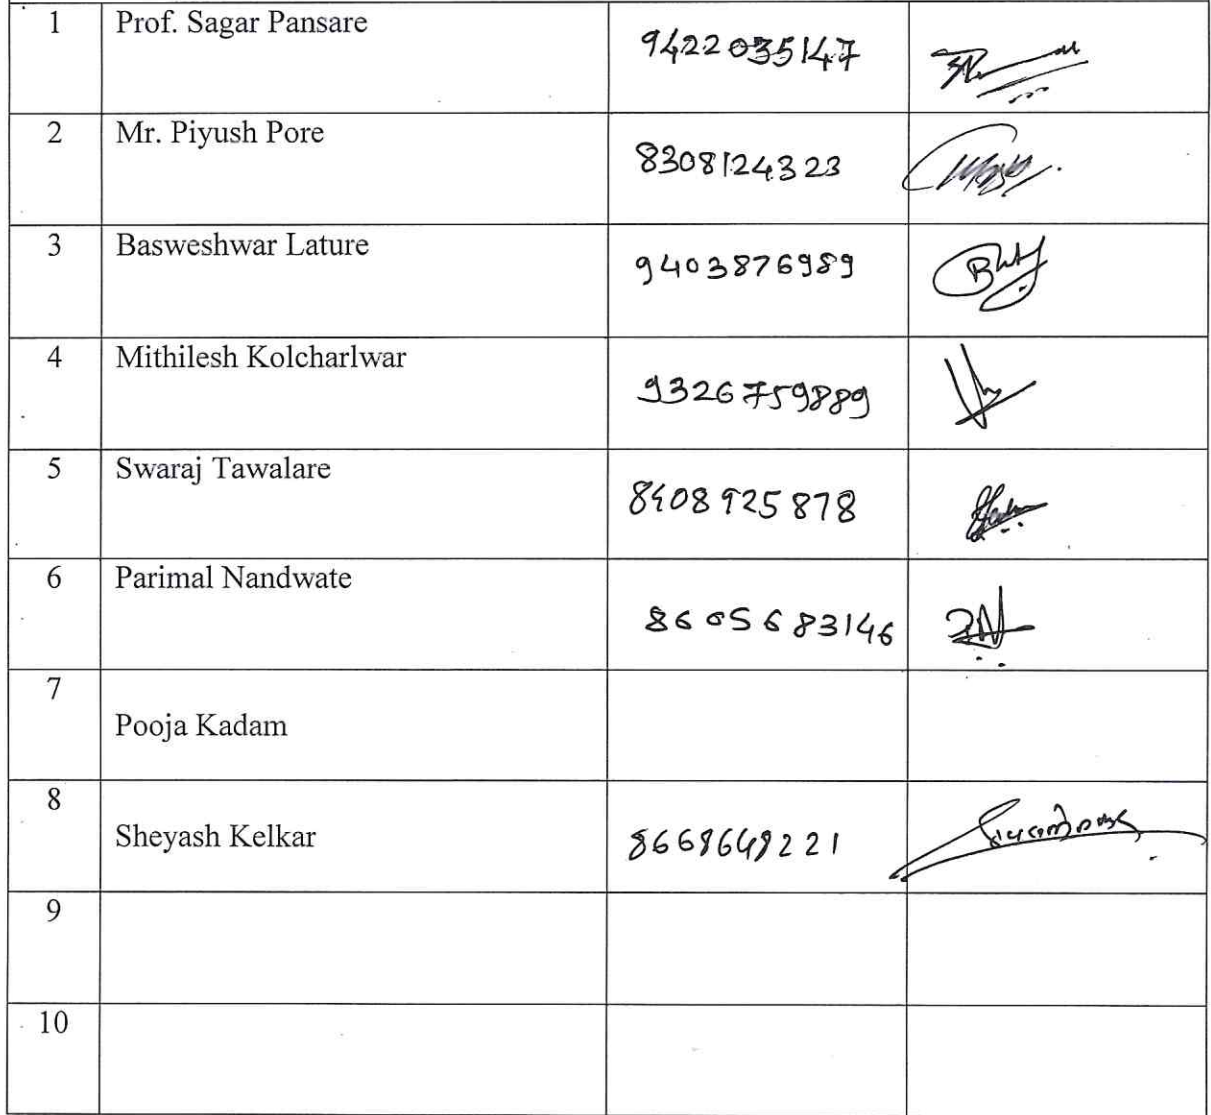 1 Prof. Sagar Pansare 9422035147
2 Mr. Piyush Pore 8308124323
3 Basweshwar Lature 9403876989
4 Mithilesh Kolcharlwar 9326759889
5 Swaraj Tawalare 8408925878
6 Parimal Nandwate 8605683146
7
Pooja Kadam
8
Sheyash Kelkar 8668649221
9
10